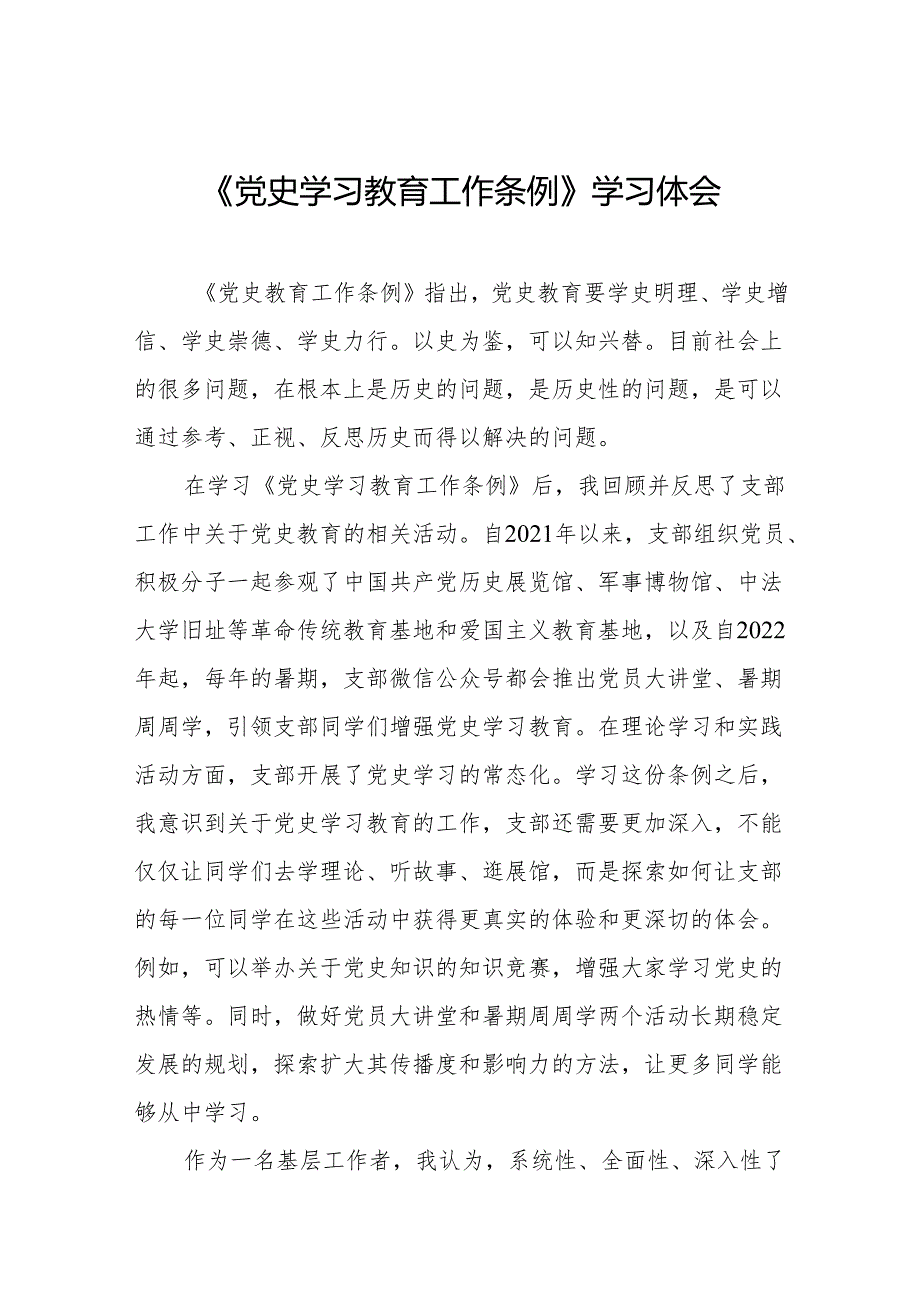 《党史学习教育工作条例》学习体会
《党史教育工作条例》指出，党史教育要学史明理、学史增
信、学史崇德、学史力行。以史为鉴，可以知兴替。目前社会上
的很多问题，在根本上是历史的问题，是历史性的问题，是可以
通过参考、正视、反思历史而得以解决的问题。
在学习《党史学习教育工作条例》后，我回顾并反思了支部
工作中关于党史教育的相关活动。自2021年以来，支部组织党员、
积极分子一起参观了中国共产党历史展览馆、军事博物馆、中法
大学旧址等革命传统教育基地和爱国主义教育基地，以及自2022
年起，每年的暑期，支部微信公众号都会推出党员大讲堂、暑期
周周学，引领支部同学们增强党史学习教育。在理论学习和实践
活动方面，支部开展了党史学习的常态化。学习这份条例之后，
我意识到关于党史学习教育的工作，支部还需要更加深入，不能
仅仅让同学们去学理论、听故事、逛展馆，而是探索如何让支部
的每一位同学在这些活动中获得更真实的体验和更深切的体会。
例如，可以举办关于党史知识的知识竞赛，增强大家学习党史的
热情等。同时，做好党员大讲堂和暑期周周学两个活动长期稳定
发展的规划，探索扩大其传播度和影响力的方法，让更多同学能
够从中学习。
作为一名基层工作者，我认为，系统性、全面性、深入性了